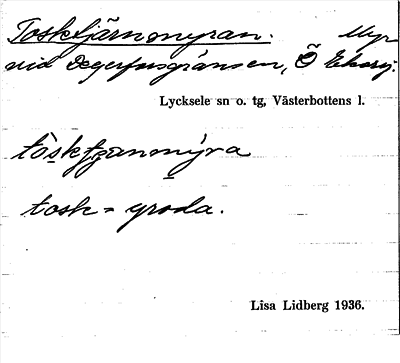 Tosktjärnmyran. Myr
vid Degerforsgränsen, Ö Ekorrj.
Lycksele sn o. tg, Västerbottens l.
tòsktjanmýra
tosk = groda.
Lisa Lidberg 1936.